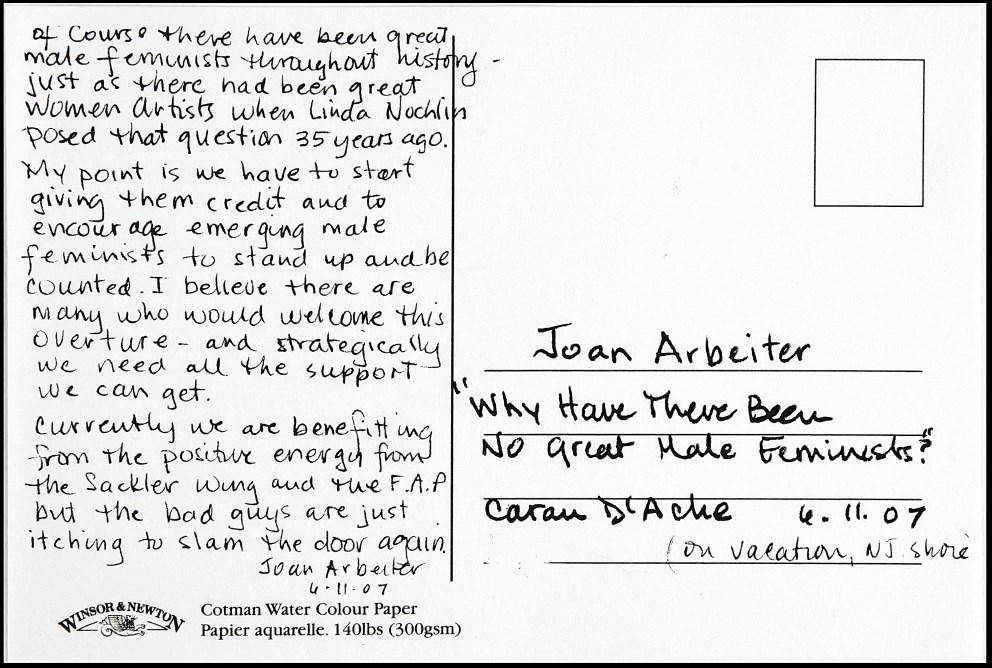 of Course there have been great
male feminists throughout history -
just as there had been great
Women Artists when Linda Nochlin
posed that question 35 years ago.
My point is we have to start
giving them credit and to
encourage emerging male
feminists to stand up and be
counted. I believe there are
many who would welcome this
overture - and strategically
we need all the support
we can get.
Currently we are benefitting
from the positive energy from
the Sackler Wing and the F.A.P
but the bad guys are just
itching to slam the door again.
Joan Arbeiter
6·11·07
WINSOR & NEWTON
Cotman Water Colour Paper
Papier aquarelle. 140lbs (300gsm)
Joan Arbeiter
"Why Have There Been
No Great Male Feminists?"
Caran D'Ache 6.11.07
(on vacation, NJ. shore